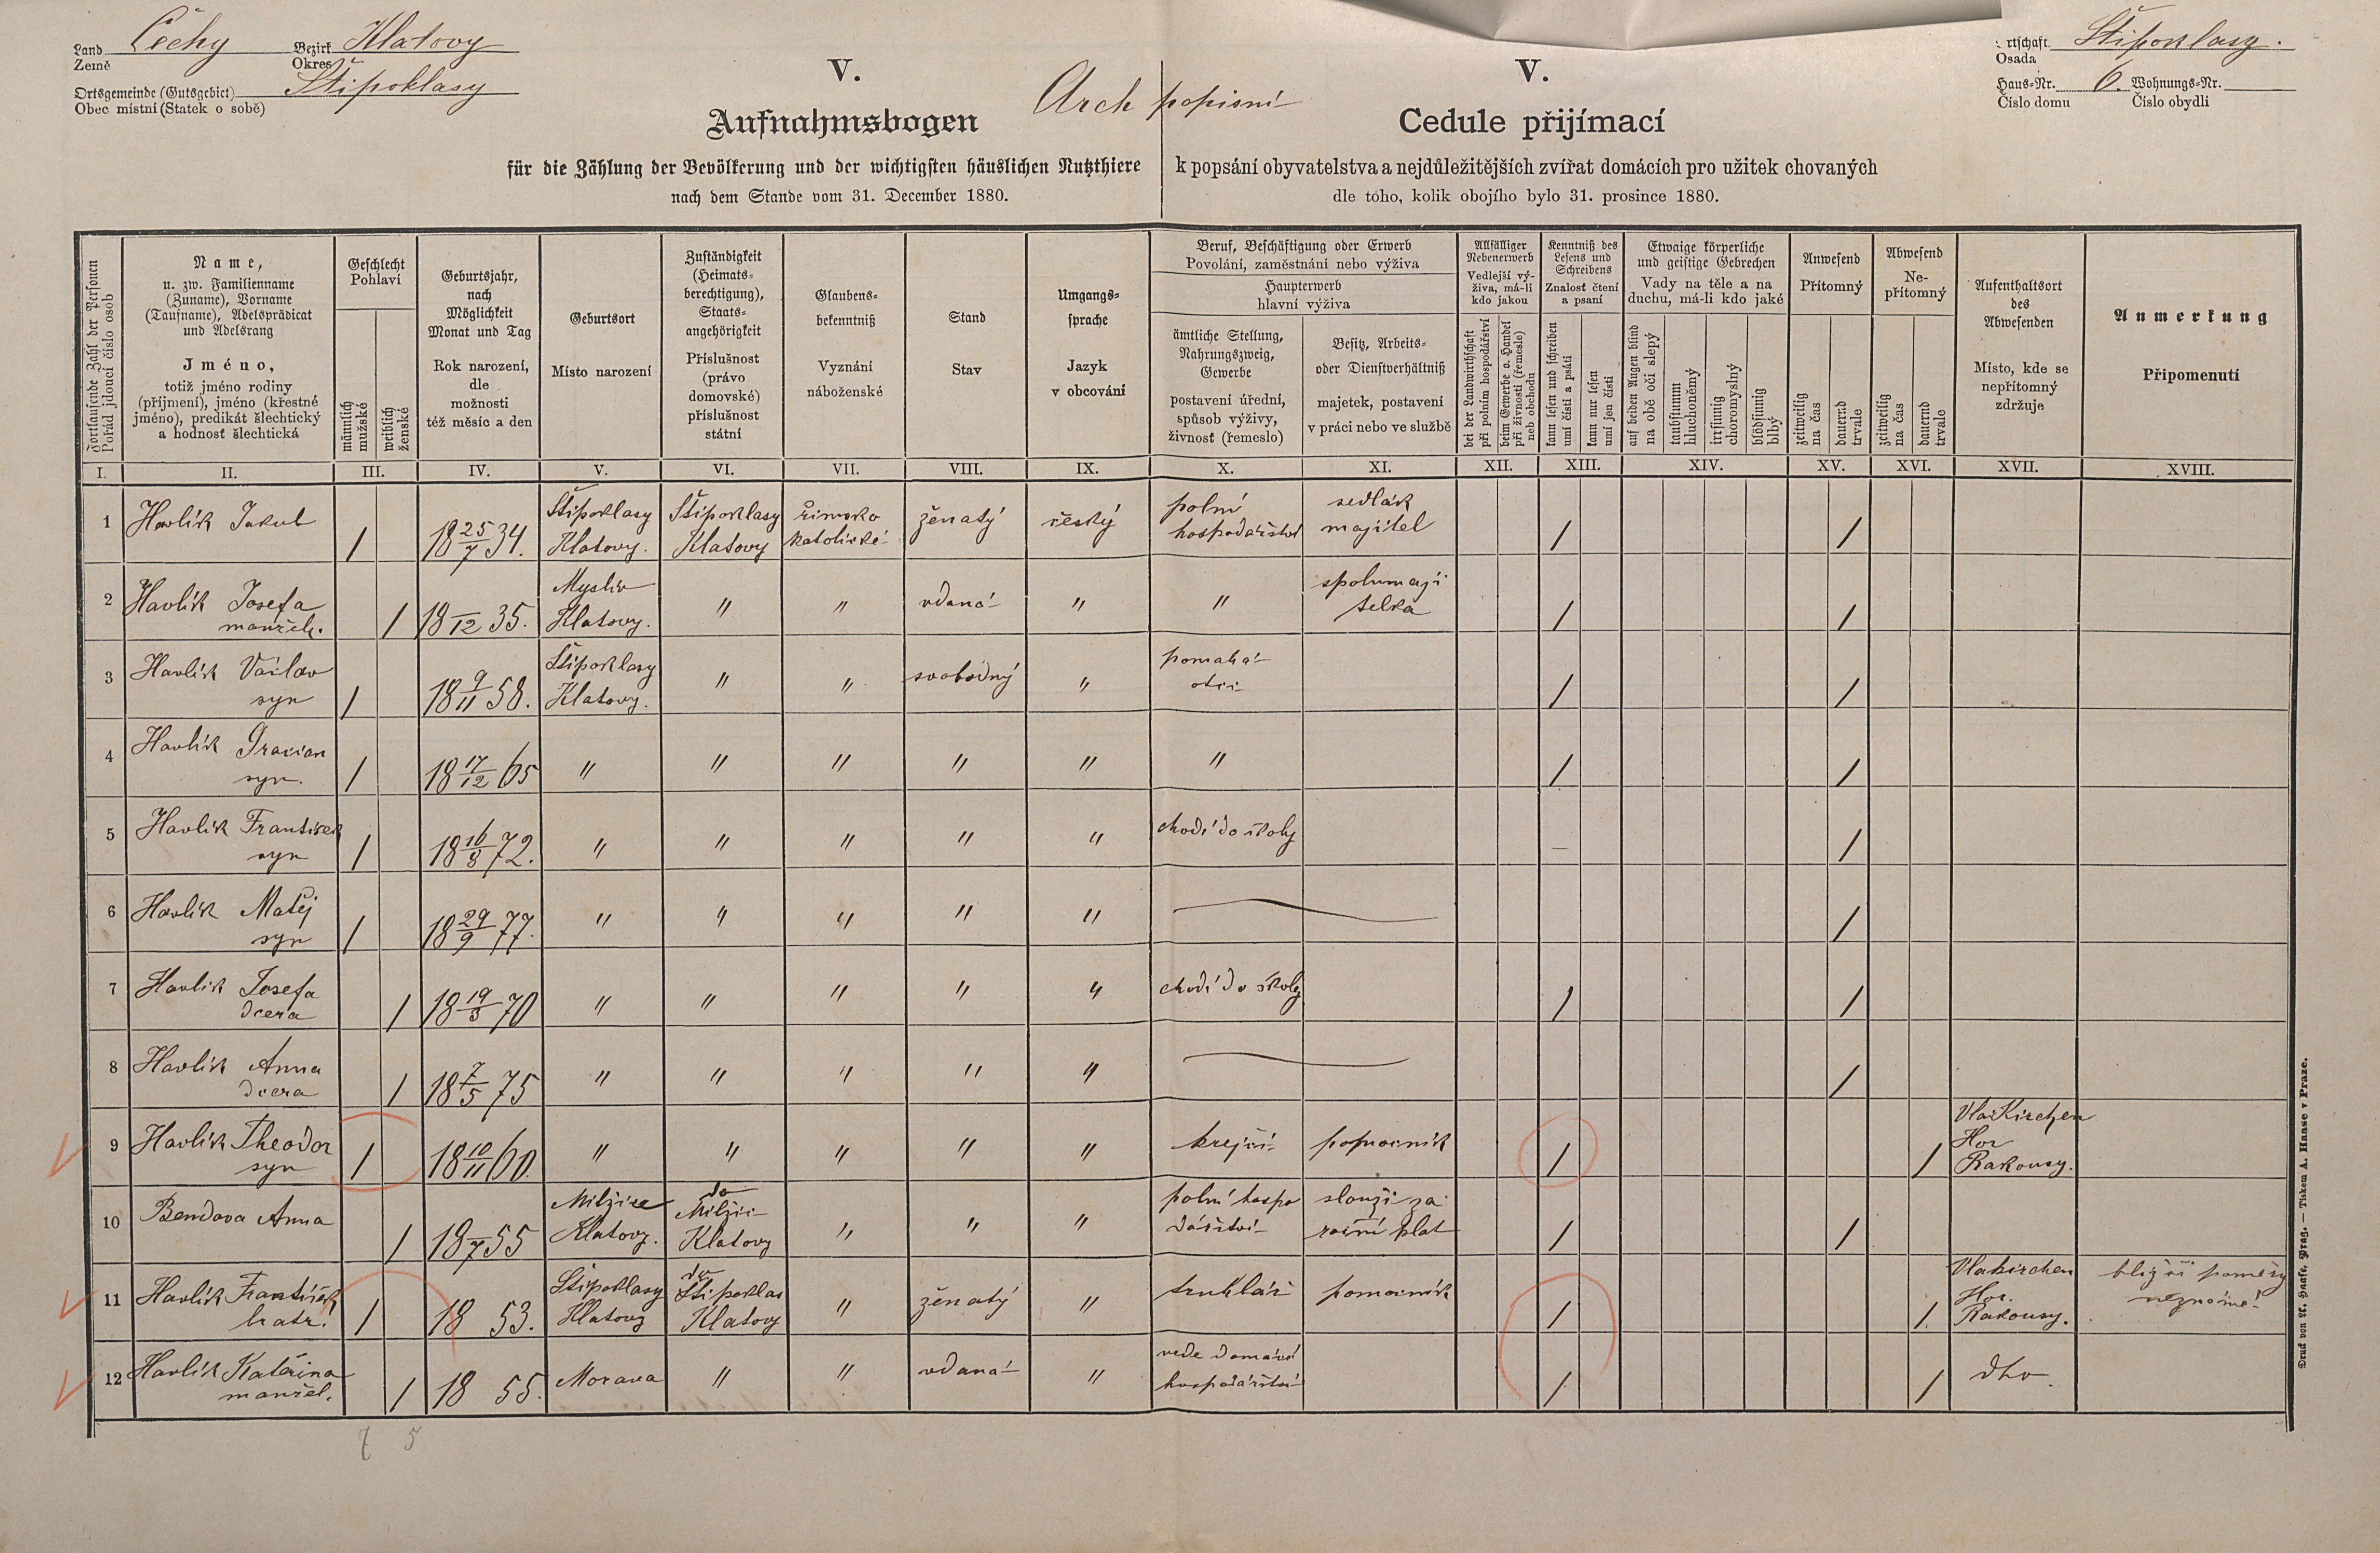 Land Čechy Bezirk Klatovy
Země Okres
Ortsgemeinde (Gutsgebiet) Štipoklasy
Obec místní (Statek o sobě)
rtschaft. Štipoklasy.
Osada
Haus-Nr. 6. Wohnungs-Nr.
Číslo domu Číslo obydlí
V. V.
Arch popisní
Aufnahmsbogen Cedule přijímací
für die Zählung der Bevölkerung und der wichtigsten häuslichen Nutzthiere
k popsání obyvatelstva a nejdůležitějších zvířat domácích pro užitek chovaných
nach dem Stande vom 31. December 1880.
dle toho, kolik obojího bylo 31. prosince 1880.
Fortlaufende Zahl der Personen
Pořád jdoucí číslo osob
Name,
u. zw. Familienname
(Zuname), Vorname
(Taufname), Adelsprädicat
und Adelsrang
Jméno,
totiž jméno rodiny
(příjmení), jméno (křestné
jméno), predikát šlechtický
a hodnosť šlechtická
Geschlecht
Pohlaví
männlich
mužské
weiblich
ženské
Geburtsjahr,
nach
Möglichkeit
Monat und Tag
Rok narození,
dle
možnosti
též měsíc a den
Geburtsort
Místo narození
Zuständigkeit
(Heimats-
berechtigung),
Staats-
angehörigkeit
Příslušnost
(právo
domovské)
příslušnost
státní
Glaubens-
bekenntniß
Vyznání
náboženské
Stand
Stav
Umgangs-
sprache
Jazyk
v obcování
Beruf, Beschäftigung oder Erwerb
Povolání, zaměstnání nebo výživa
Haupterwerb
hlavní výživa
ämtliche Stellung,
Nahrungszweig,
Gewerbe
postavení úřední,
spůsob výživy,
živnosť (řemeslo)
Besitz, Arbeits-
oder Dienstverhältniß
majetek, postavení
v práci nebo ve službě
Allfälliger
Nebenerwerb
Vedlejší vý-
živa, má-li
kdo jakou
bei der Landwirthschaft
při polním hospodářství
beim Gewerbe o. Handel
při živnosti (řemesle)
neb obchodu
Kenntniß des
Lesens und
Schreibens
Znalosť čtení
a psaní
kann lesen und schreiben
umí čísti a psáti
kann nur lesen
umí jen čísti
Etwaige körperliche
und geistige Gebrechen
Vady na těle a na
duchu, má-li kdo jaké
auf beiden Augen blind
na obě oči slepý
taubstumm
hluchoněmý
irrsinnig
choromyslný
blödsinnig
blbý
Anwesend
Přítomný
zeitweilig
na čas
dauernd
trvale
Abwesend
Ne-
přítomný
zeitweilig
na čas
dauernd
trvale
Aufenthaltsort
des
Abwesenden
Místo, kde se
nepřítomný
zdržuje
Anmerkung
Připomenutí
I. II. III. IV. V. VI. VII. VIII. IX. X. XI. XII. XIII. XIV. XV. XVI. XVII. XVIII.
1 Havlík Jakub / 18 25/7 34. Štipoklasy Klatovy. Štipoklasy Klatovy římsko katolické ženatý český polní hospodářství sedlák majitel / /
2 Havlík Josefa manžel. / 18 /12 35. Myslív Klatovy. " " vdaná " " spolumaji telka / /
3 Havlík Václav syn / 18 9/11 58. Štipoklasy Klatovy. " " svobodný " pomáhá otci / /
4 Havlík Gracian syn. / 18 17/12 65 " " " " " " / /
5 Havlík František syn / 18 16/8 72. " " " " " chodí do školy – /
6 Havlík Matěj syn / 18 29/9 77. " " " " " /
7 Havlík Josefa dcera / 18 19/3 70 " " " " " chodí do školy / /
8 Havlík Anna dcera / 18 7/5 75 " " " " " /
9 Havlík Theodor syn / 18 10/11 60. " " " " " krejčí pomocník / / Kirchen Hor Rakousy.
10 Bendova Anna / 18 /7 55 Milžice Klatovy. do Milžic Klatovy " " " polní hospo dářství slouží za roční plat / /
11 Havlík František bratr. / 18 53. Štipoklasy Klatovy do Štipoklas Klatovy " ženatý " truhlář pomocník / /. Vlakirchen Hor. Rakousy. bližší poměry neznámé
12 Havlík Kateřina manžel. / 18 55. Morava " " vdaná " vede domácí hospodářství / / dto.
7 5
Druck von A. Haase, Prag. — Tiskem A. Haase v Praze.